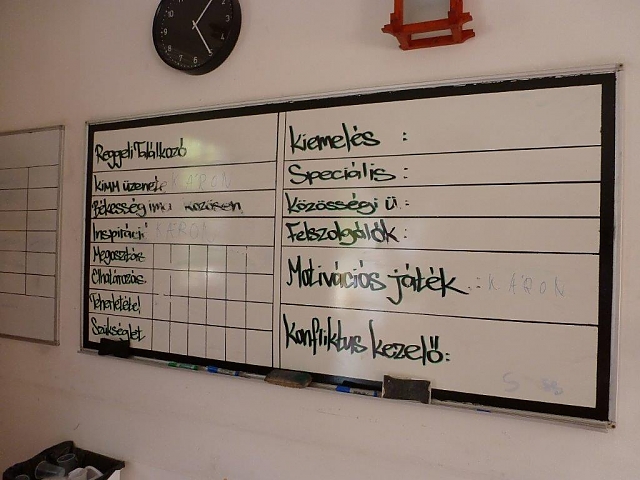 Reggeli Találkozó
Kimm üzenete KÁRON
Békesség ima közösen
Inspiráció KÁRON
Megosztás
Elhatározás
Teherletétel
Szükséglet
Kiemelés :
Speciális :
Közösségi ü :
Felszolgálók :
Motivációs játék : KÁRON
Konfliktus kezelő :